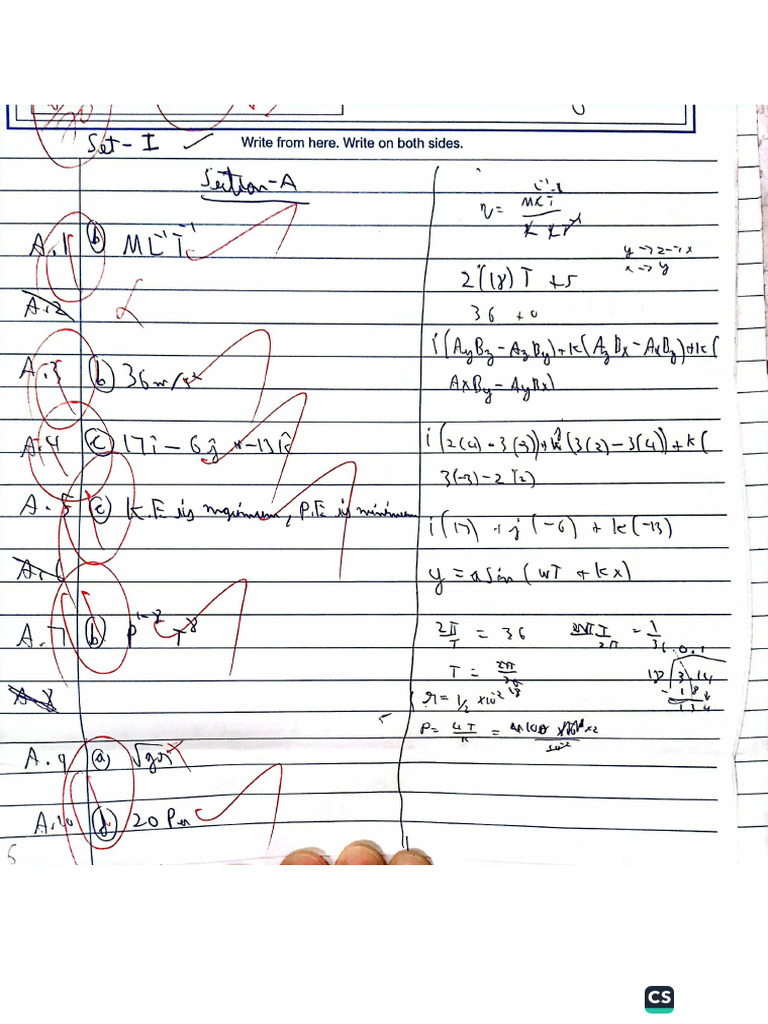 Set-I
Write from here. Write on both sides.
Section-A
A.1 (b) ML⁻¹T⁻¹
A.2
A.3 (b) 36m/s²
A.4 (c) 17i - 6j - 13k̂
A.5 (c) K.E is maximum, P.E is minimum
A.7 (b) P¹⁻ɣ Tɣ
A.8
A.9 (a) √gr
A.10 (d) 20 Pa
η =
y → z → x
x → y
2(18)T + 5
36 + 0
i(AyBz - AzBy) + k(AzBx - AxBz) + k(
AxBy - AyBx)
i(2(4) - 3(-3)) + j(3(2) - 3(4)) + k(
3(-3) - 2(2)
i(17) + j(-6) + k(-13)
y = a Sin(wT + kx)
2π/T = 36
T = 2π/36
r = 1/2 × 10⁻²
P = 4T/R =
CS